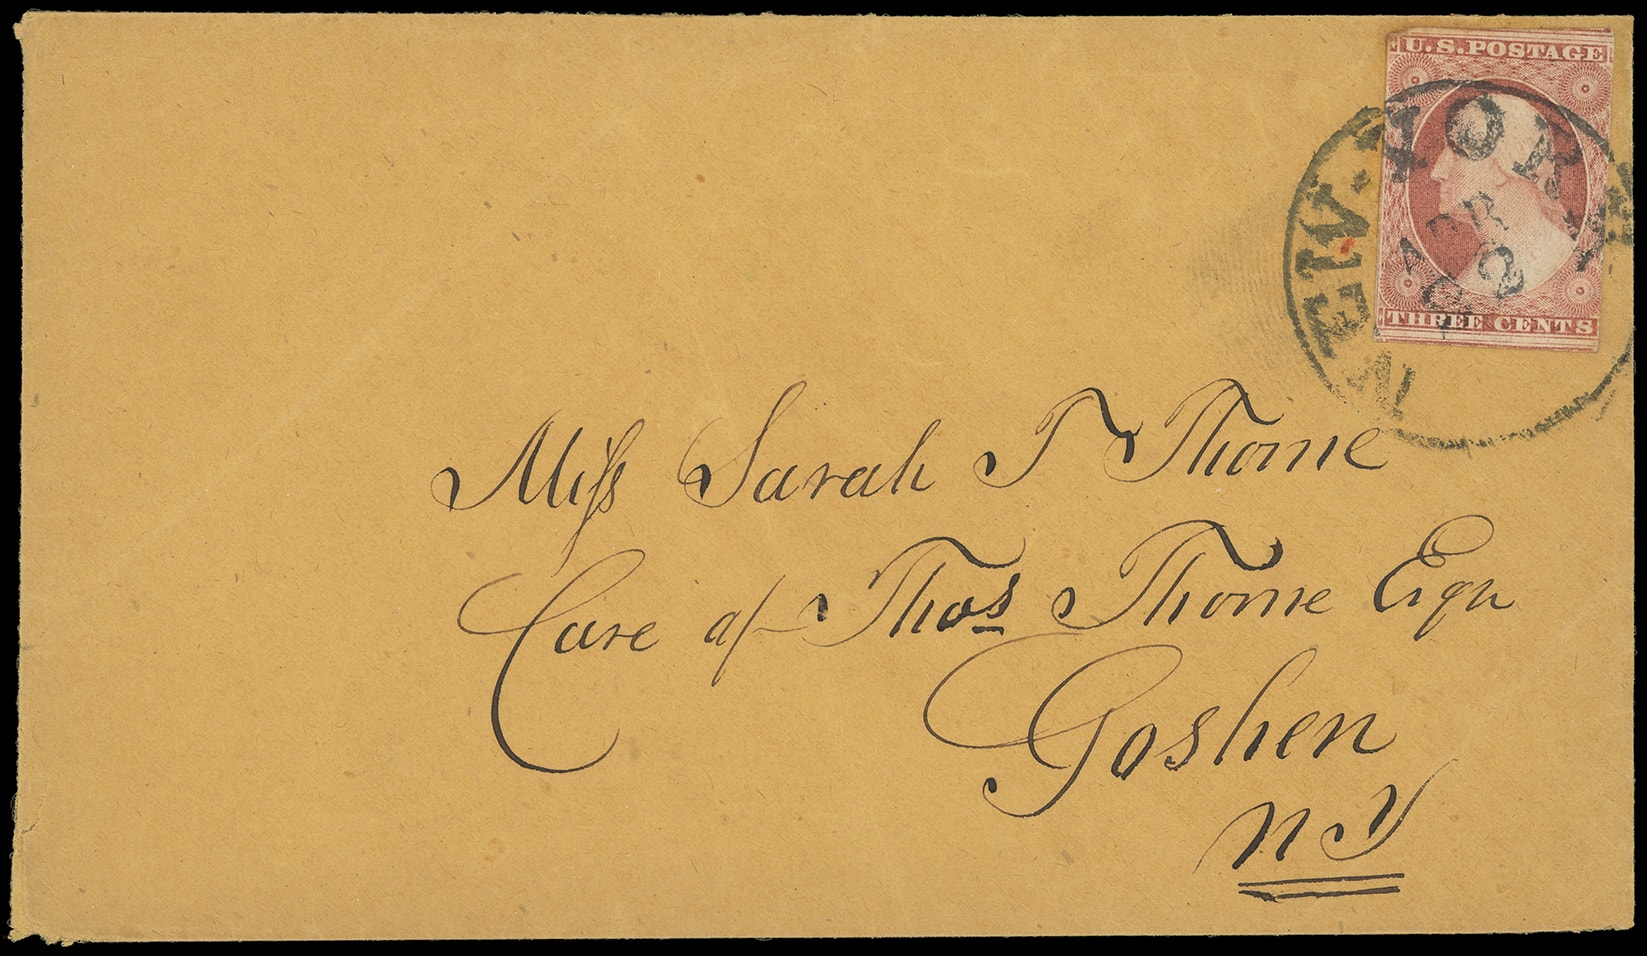 U.S. POSTAGE
NEW-YORK
APR
2
THREE CENTS
Miss Sarah T Thorne
Care of Thos Thorne Esqr
Goshen
NY